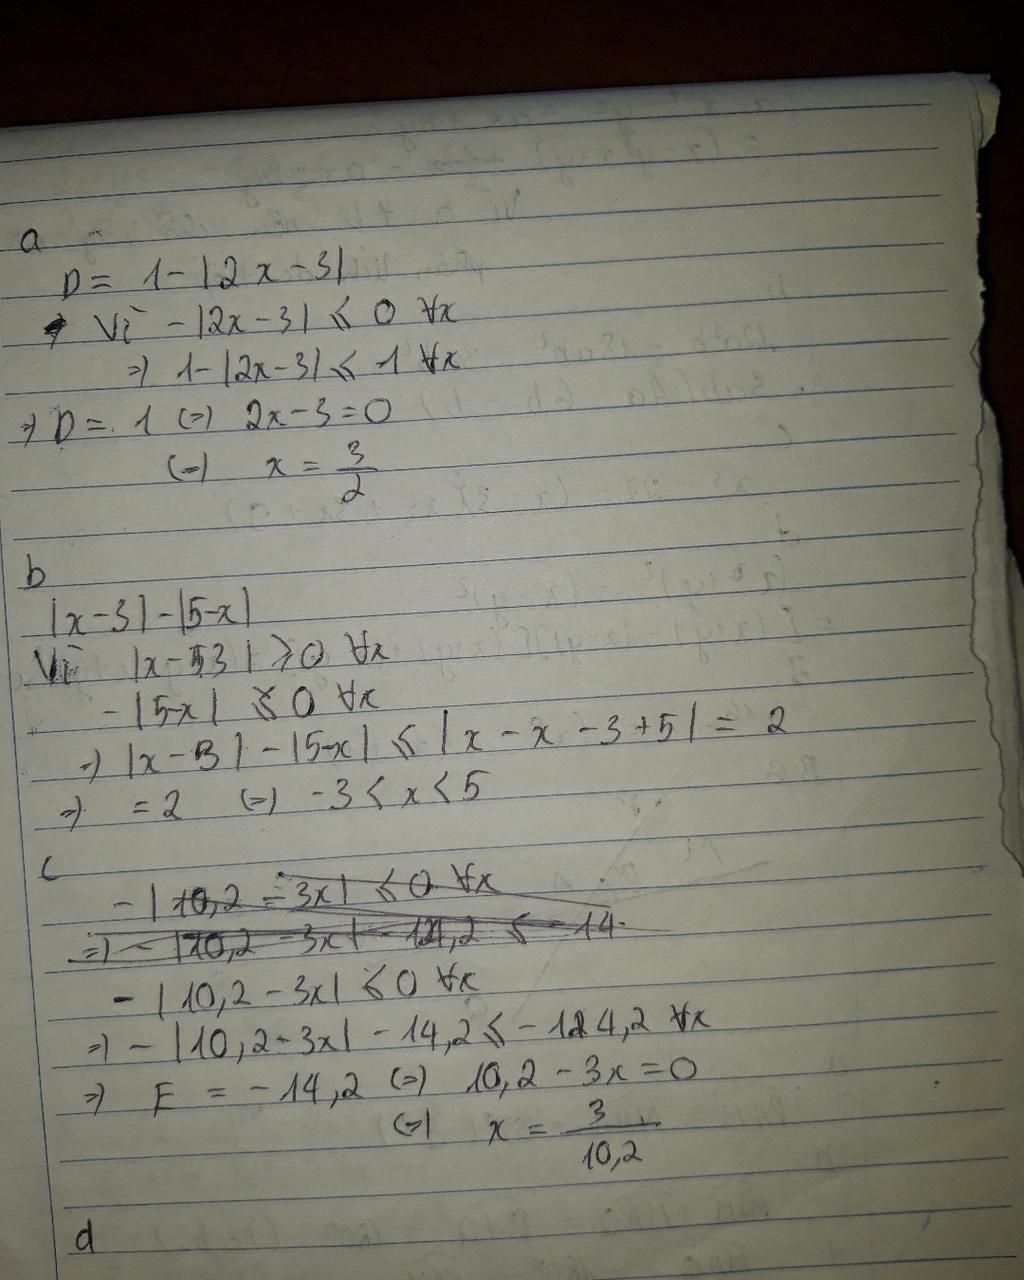 a
D = 1 - |2x - 3|
Vì - |2x - 3| ≤ 0 ∀x
=> 1 - |2x - 3| ≤ 1 ∀x
=> D = 1 (=) 2x - 3 = 0
(=) x = 3/2
b
|x - 3| - |5 - x|
Vì |x - 3| ≥ 0 ∀x
- |5 - x| ≤ 0 ∀x
=> |x - 3| - |5 - x| ≤ |x - x - 3 + 5| = 2
=> = 2 (=) -3 < x < 5
c
- |10,2 - 3x| ≤ 0 ∀x
=> - |10,2 - 3x| - 14,2 ≤ - 14
- |10,2 - 3x| ≤ 0 ∀x
=> - |10,2 - 3x| - 14,2 ≤ - 14,2 ∀x
=> E = - 14,2 (=) 10,2 - 3x = 0
(=) x = 3/10,2
d